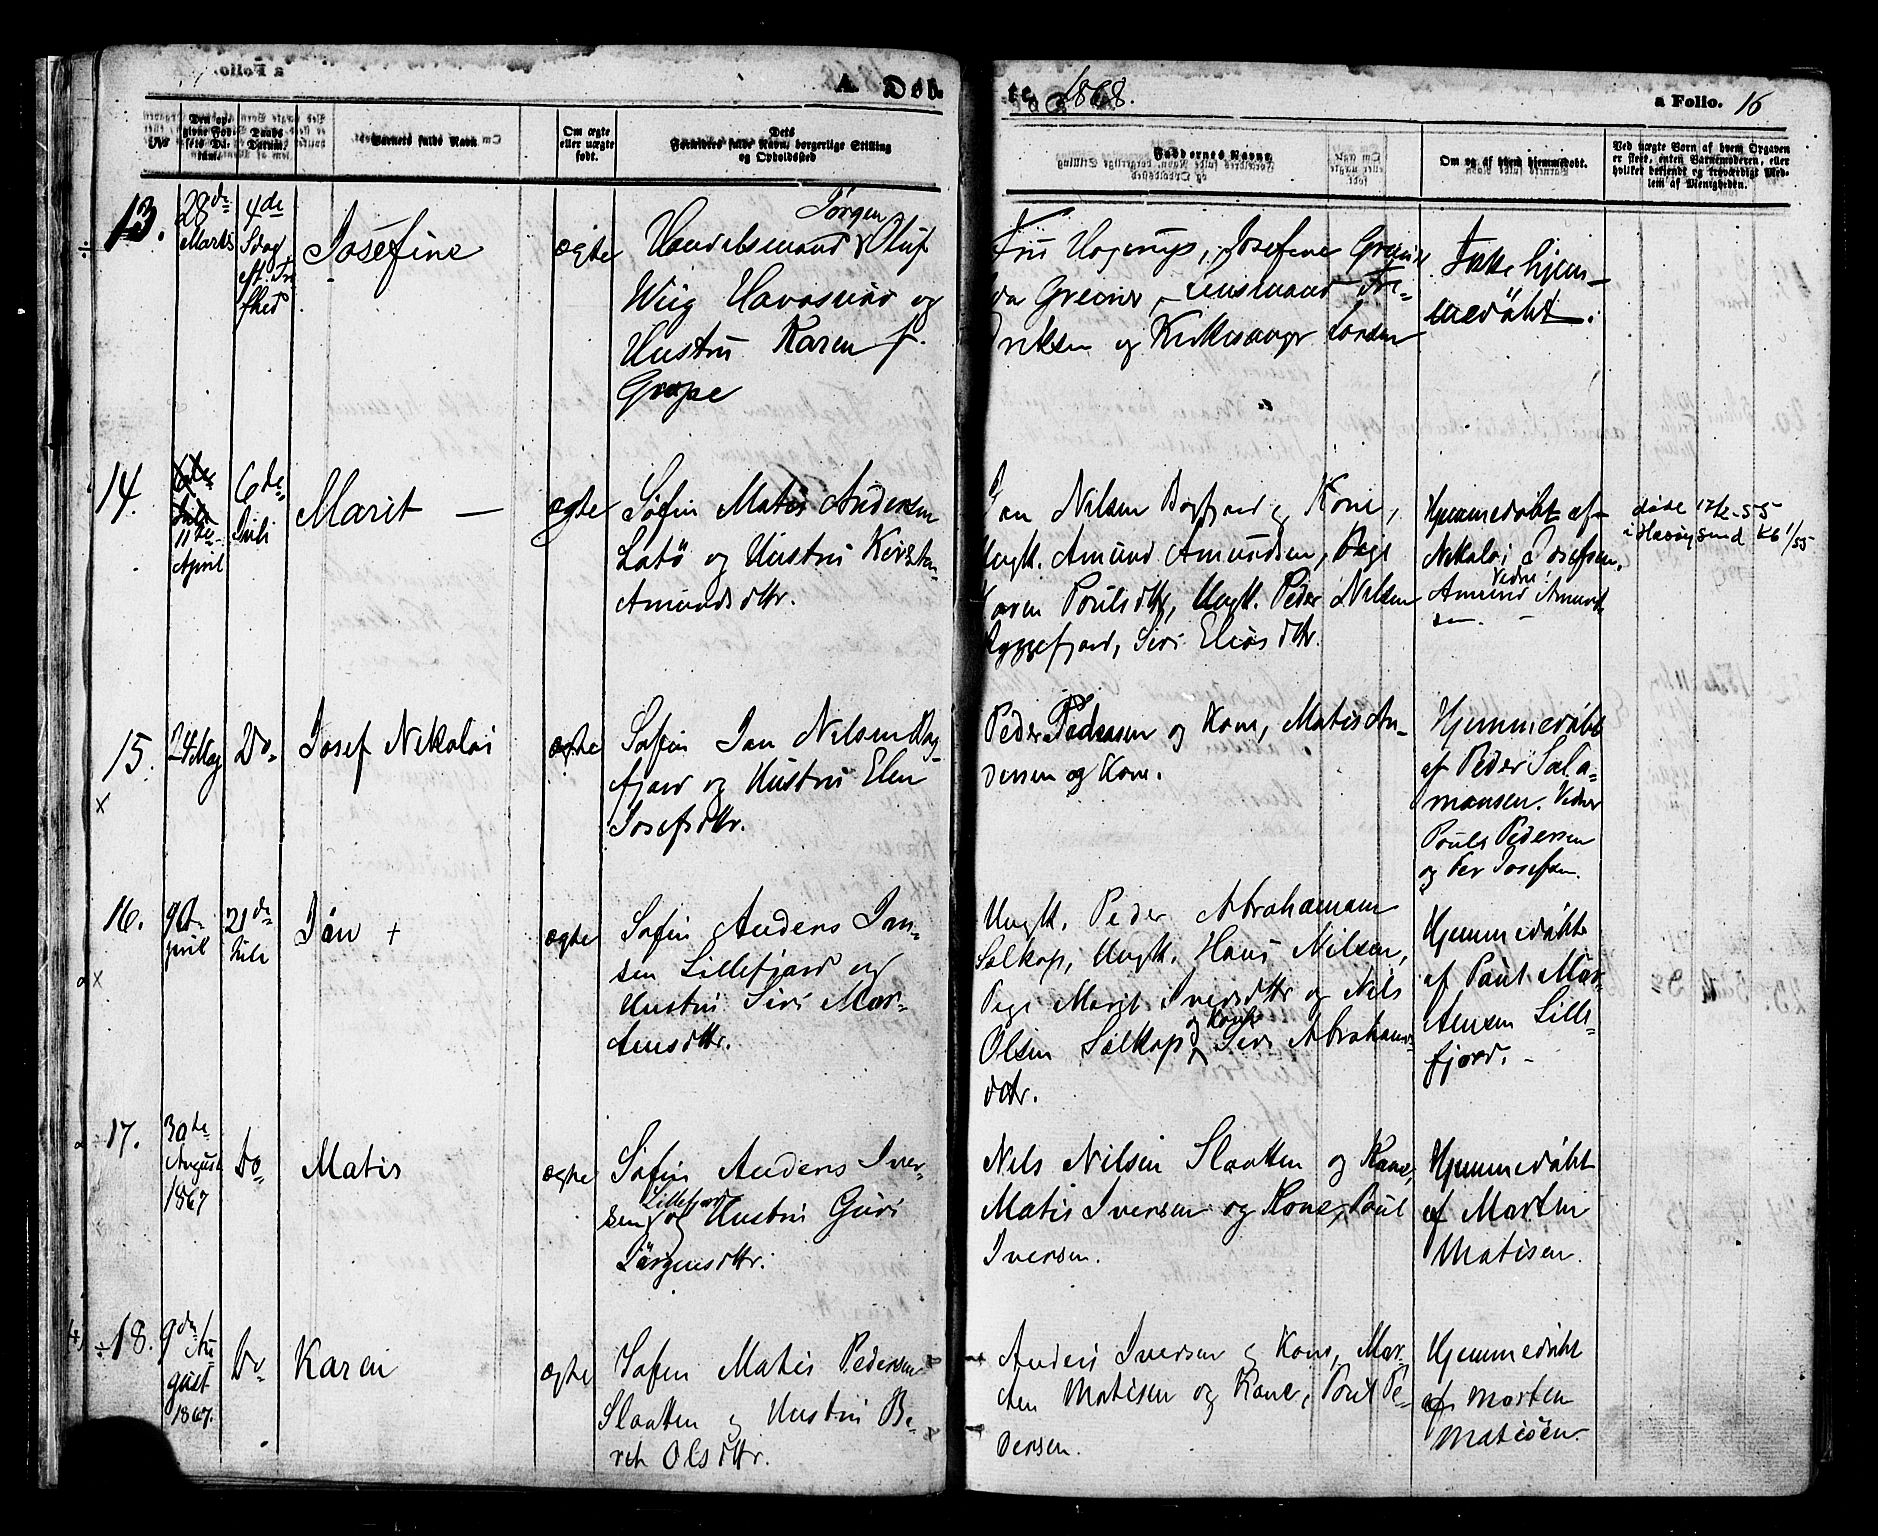 A. Døb-
te 1868.
a Folio. 16
No
Den op-
givne Fød-
sels Da-
tum.
Daabs
Datum.
Barnets fulde Navn
Om ægte
eller uægte
født.
Dets
Forældres fulde Navn, borgerlige Stilling
og Opholdssted
Faddernes Navne
Om og af hvem hjemmedøbt.
Ved uægte Børn af hvem Opgaven
er skeet, enten Barnemoderen, eller
hvilket bekjendt og troværdigt Med-
lem af Menigheden.
13.
28de
Marts
4de
Sdag
ef. Tre
fhed
Josefine
ægte
Handelsmand Jørgen Oluf
Wiig Havøsund og
Hustru Karen f.
Grape
Fru Hagerup, Josefine Greiner
Greiner, Lensmand Fre-
driksen og Kirkesanger Larsen
Ikke hjem-
medøbt.
14.
6te
Juli
11te
April
6de
Juli
Marit —
ægte
Søfin Matis Andersen
Latø og Hustru Kirsten
Amundsdttr.
Jan Nilsen Bagfjord og Kone,
Ungk. Amund Amundsen, Pige
Karen Poulsdttr, Ungk. Peder Nilsen
Ryggefjord, Siri Eliasdttr.
Hjemmedøbt af
Nikolai Josefsen,
Vidne:
Amund Amund-
sen. —
døde 17/2-55
i Havøysund K6 1/55
15.
x
24 Mai
Do.
Josef Nikolai
ægte
Søfin Jan Nilsen Bag-
fjord og Hustru Elen
Josefsdttr.
Peder Pedersen og Kone, Matis An-
dersen og Kone.
Hjemmedøbt
af Peder Sala-
monsen. Vidner
Pouls Pedersen
og Per Josefsen.
16.
x
9 A-
pril
21de
Juli
Jon +
ægte
Søfin Anders Jan-
sen Lillefjord og
Hustru Siri Mor-
tensdttr.
Ungk. Peder Abrahamsen
Selkop, Ungk. Hans Nilsen,
Pige Marit Iversdttr og Nils
Olsen Selkop og Kone Siri Abrahams-
dttr.
Hjemmedøbt
af Paul Mor-
tensen Lille-
fjord. —
17.
30te
August
1867
Do.
Matis
ægte
Søfin Anders Iver-
sen Lillefjord og Hustru Guri
Jørgensdttr.
Nils Nilsen Slaatten og Kone,
Matis Iversen og Kone, Poul
Iversen.
Hjemmedøbt
af Martin
Matisen.
18.
9de Au-
gust
1867.
Do.
Karen
ægte
Søfin Matis Pedersen
Slaatten og Hustru Be-
rit Olsdttr.
Anders Iversen og Kone, Mor-
ten Matisen og Kone, Poul Pe-
dersen.
Hjemmedøbt
af Morten
Matisen.